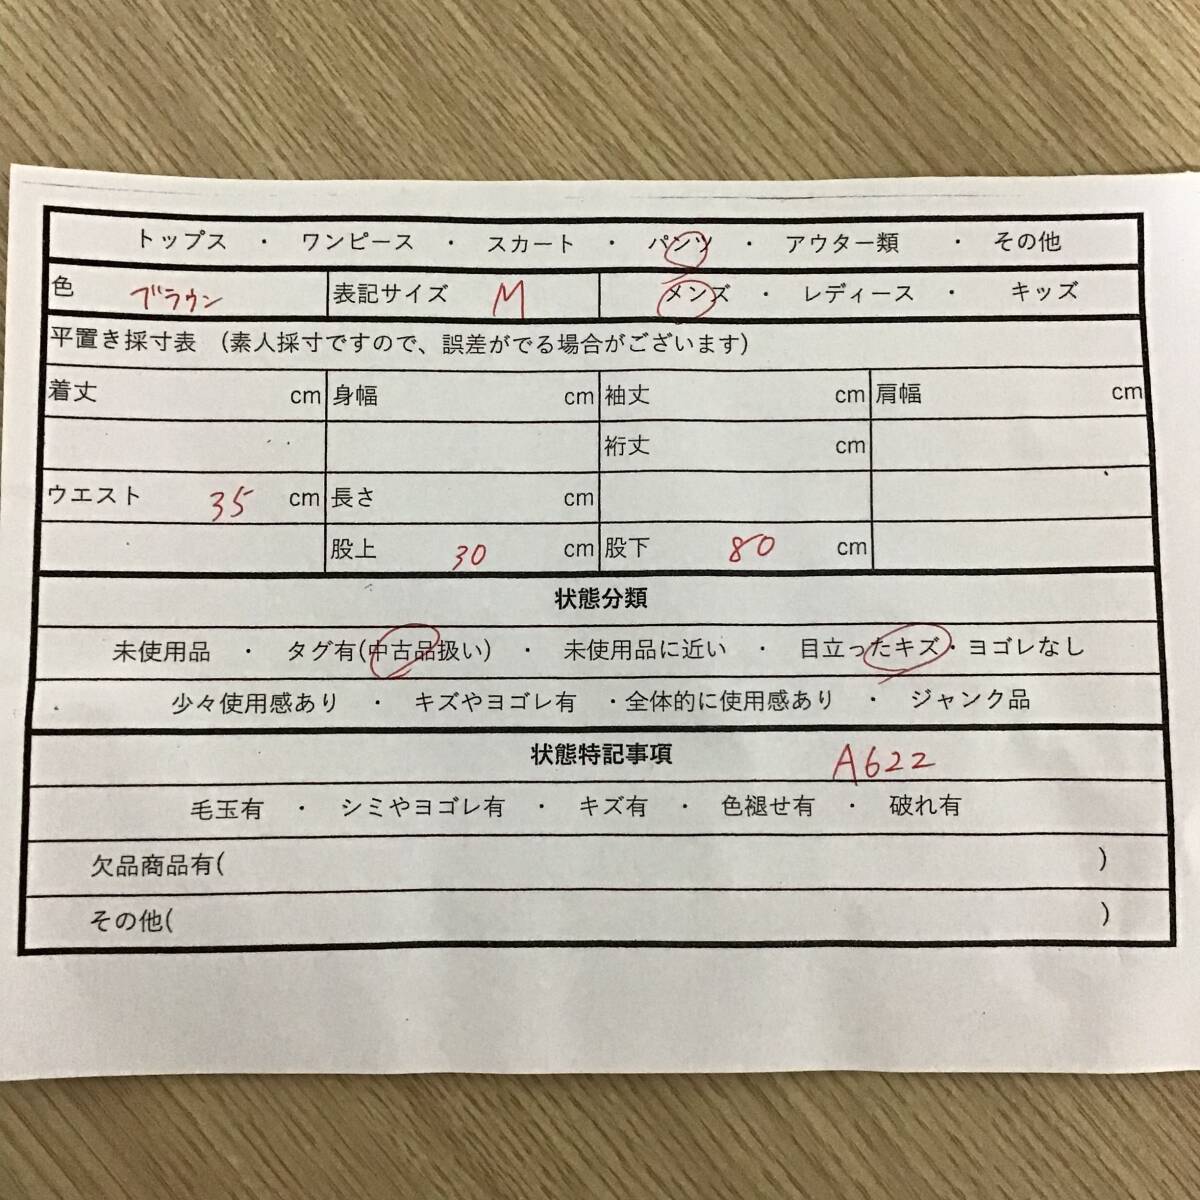 トップス ・ ワンピース ・ スカート ・ パンツ ・ アウター類 ・ その他
色 ブラウン 表記サイズ M メンズ ・ レディース ・ キッズ
平置き採寸表 (素人採寸ですので、誤差がでる場合がございます)
着丈 cm 身幅 cm 袖丈 cm 肩幅 cm
裄丈 cm
ウエスト 35 cm 長さ cm
股上 30 cm 股下 80 cm
状態分類
未使用品 ・ タグ有(中古品扱い) ・ 未使用品に近い ・ 目立ったキズ・ヨゴレなし
少々使用感あり ・ キズやヨゴレ有 ・全体的に使用感あり ・ ジャンク品
状態特記事項 A622
毛玉有 ・ シミやヨゴレ有 ・ キズ有 ・ 色褪せ有 ・ 破れ有
欠品商品有( )
その他( )